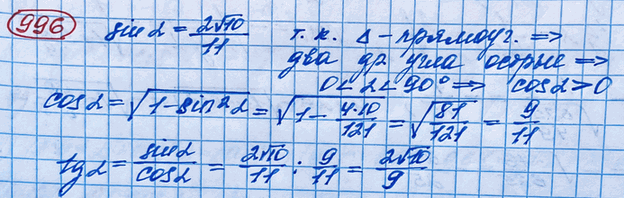 996 sin α = 2√10/11 т. к. Δ - прямоуг. ⇒
два др. угла острые ⇒
0 < α < 90° ⇒ cos α > 0
cos α = √(1 - sin² α) = √(1 - 4·10/121) = √(81/121) = 9/11
tg α = sin α/cos α = 2√10/11 : 9/11 = 2√10/9